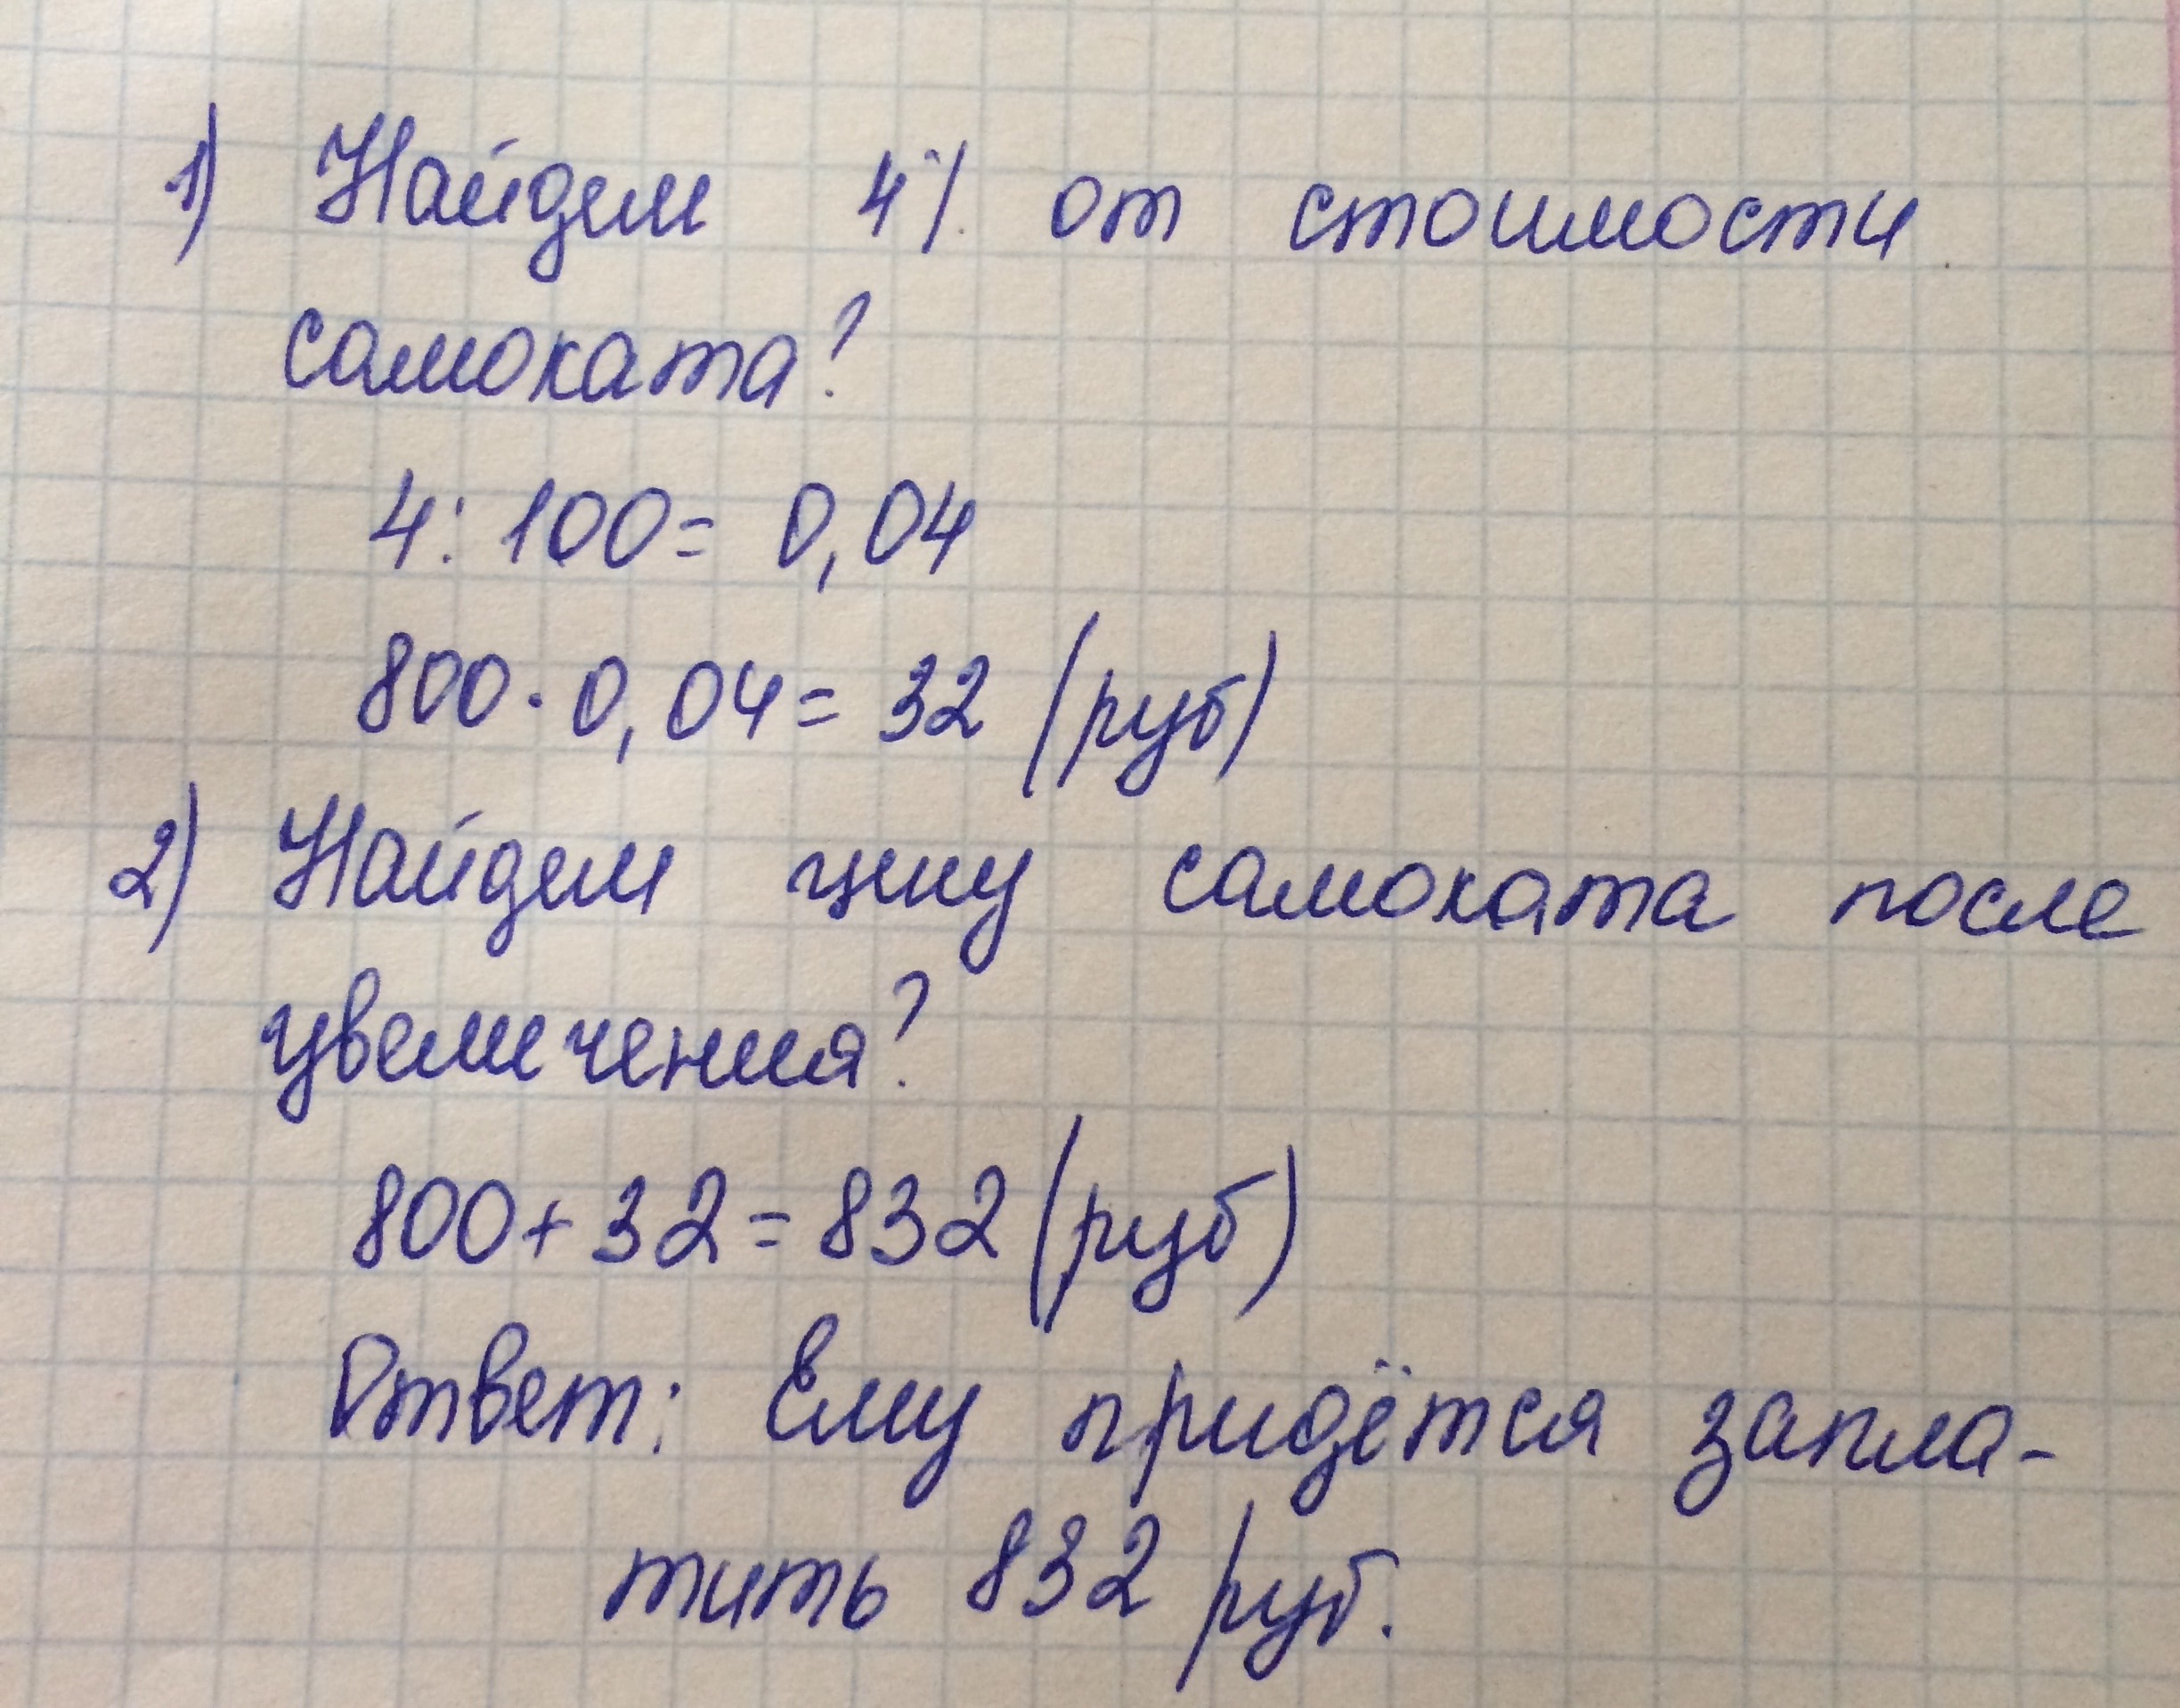 1) Найдем 4% от стоимости
самоката?
4: 100= 0,04
800 · 0,04= 32 (руб)
2) Найдем цену самоката после
увеличения?
800+32=832(руб)
Ответ: Ему придётся запла-
тить 832 руб.